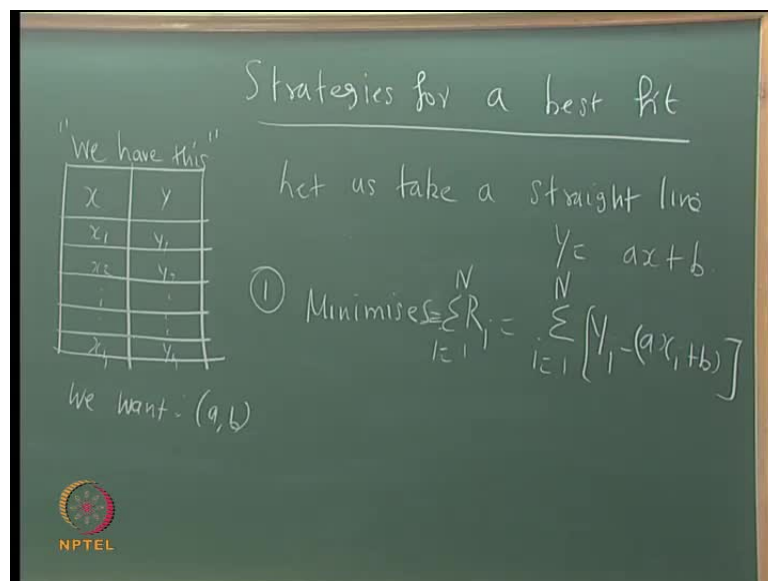 Strategies for a best fit
"We have this"
x y
x₁ y₁
x₂ y₂
⋮ ⋮
x₁ y₁
We want: (a,b)
Let us take a straight line
y = ax + b.
① Minimise S = Σ_{i=1}^{N} R_i = Σ_{i=1}^{N} [Y_i - (ax_i + b)]
NPTEL